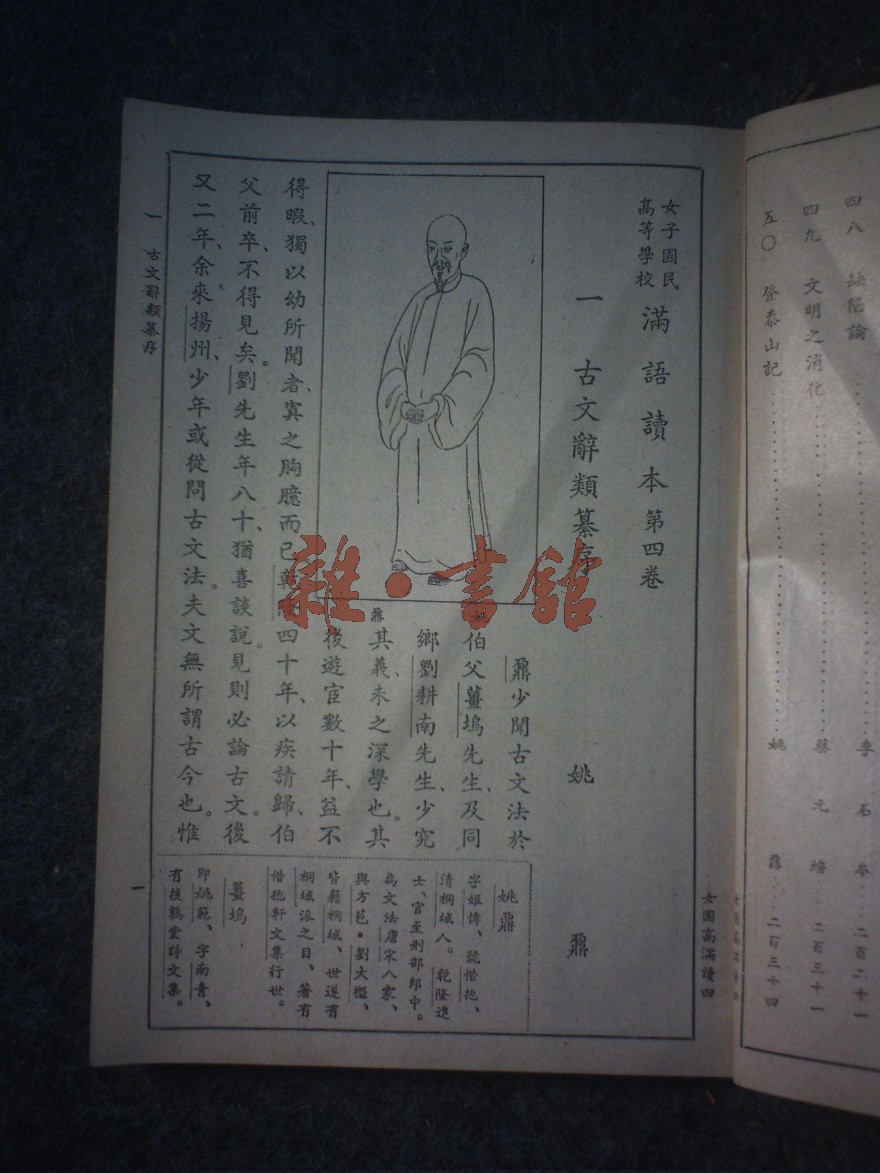 四八 缺陷論……李石岑……二百六十一
四九 文明之消化……蔡元培……二百三十一
五〇 登泰山記……姚鼐……二百三十四
女國高滿讀四
女國高滿讀四
女子國民
高等學校
滿語讀本 第四卷
一 古文辭類纂序
姚鼐
鼐少聞古文法於
伯父薑塢先生、及同
鄉劉耕南先生、少究
其義、未之深學也。其
後遊宦數十年、益不
得暇、獨以幼所聞者、寘之胸臆而已。乾隆四十年、以疾請歸、伯
父前卒、不得見矣。劉先生年八十、猶喜談說、見則必論古文。後
又二年、余來揚州、少年或從問古文法。夫文無所謂古今也。惟
姚鼐
字姬傳、號惜抱、
清桐城人。乾隆進
士、官至刑部郎中。
為文法唐宋八家、
與方苞・劉大櫆、
皆籍桐城、世遂有
桐城派之目、著有
惜抱軒文集行世。
薑塢
即姚範、字南青、
有援鶉堂詩文集。
姚鼐
一 古文辭類纂序
一
雜・書館